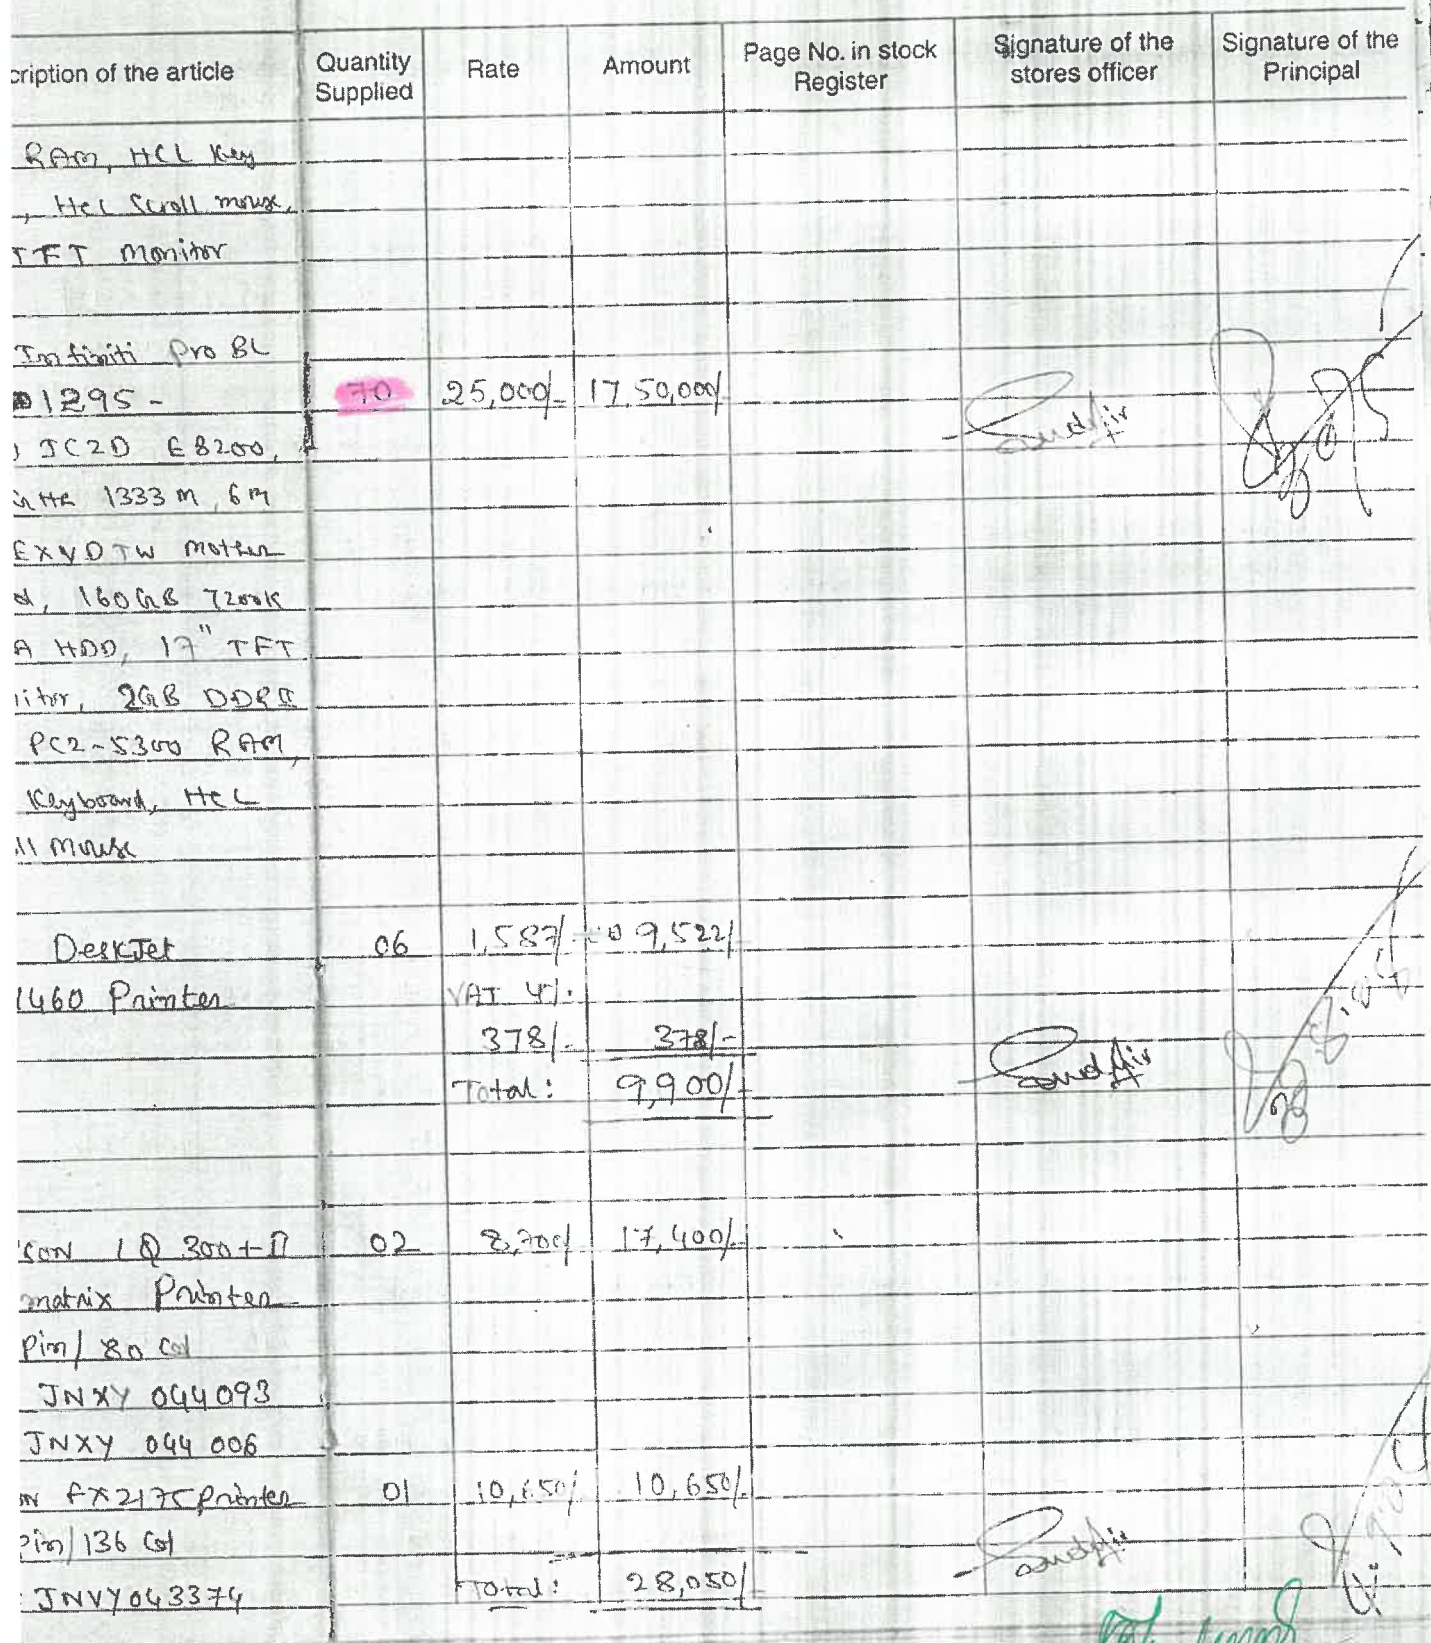 cription of the article Quantity Supplied Rate Amount Page No. in stock Register Signature of the stores officer Signature of the Principal
RAM, HCL Key
, HCL Scroll mouse,
TFT Monitor
Infiniti Pro BL
1295 - 70 25,000/- 17,50,000/-
E8200,
1333 M, 6M
mother
, 160GB 7200R
A HDD, 17" TFT
itor, 2GB DDRII
PC2-5300 RAM,
Keyboard, HCL
ll Mouse
DeskJet 06 1,587/- 9,522/-
1460 Printer VAT 4%.
378/- 378/-
Total: 9,900/-
son LQ 300+II 02 8,700/- 17,400/-
matrix Printer
Pin/ 80 Col
JNXY 044093
JNXY 044 006
FX2175 Printer 01 10,650/- 10,650/-
Pin/136 Col
: JNVY043374 Total: 28,050/-